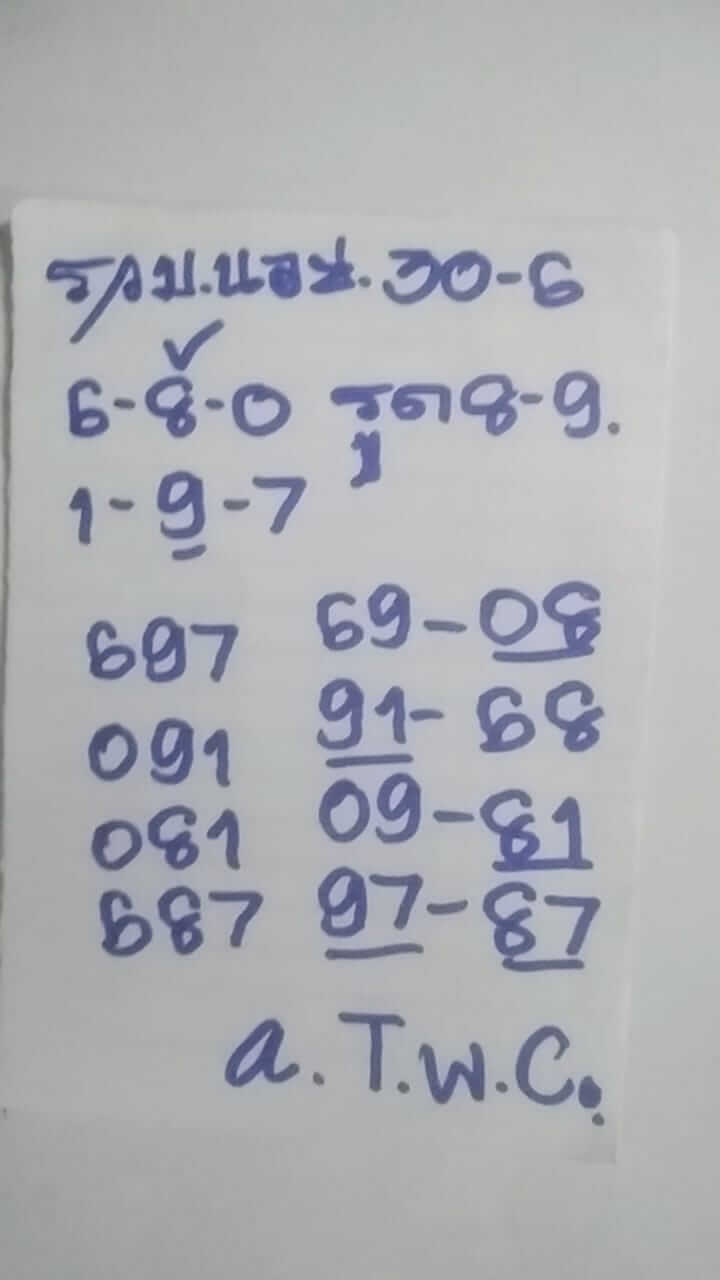 รวม.นอส.30-6
6-8-0 รูด8-9.
1-9-7
697 69-08
091 91-68
081 09-81
687 97-87
a.T.W.C.